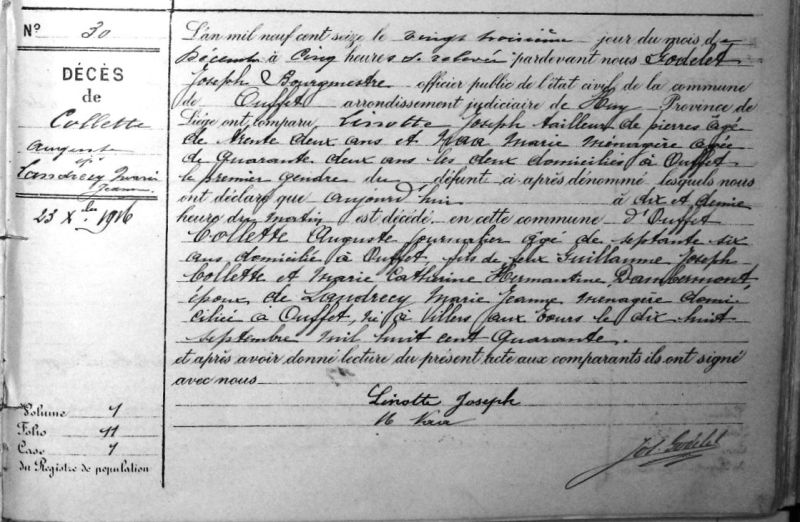 N° 30
DÉCÈS
de
Collette
Auguste
ép.
Landrecy Marie
Jeanne
23 Xbre 1916
Volume 1
Folio 11
Case 1
du Registre de population
L'an mil neuf cent seize le vingt troisième jour du mois de
Décembre à cinq heures de relevée pardevant nous Godelet
Joseph Bourgmestre officier public de l'état civil de la commune
de Ouffet arrondissement judiciaire de Huy Province de
Liège ont comparu Linotte Joseph tailleur de pierres âgé
de trente deux ans et Marie Ménagère âgée
de quarante deux ans les deux domiciliés à Ouffet
le premier gendre du défunt ci après dénommé lesquels nous
ont déclaré que aujourd'hui à dix et demie
heures du matin est décédé en cette commune d'Ouffet
Collette Auguste journalier âgé de septante six
ans domicilié à Ouffet, fils de feux Guillaume Joseph
Collette et Marie Catherine Hermantine Dambermont,
époux de Landrecy Marie Jeanne ménagère domi
ciliée à Ouffet, né à Villers aux Tours le dix huit
septembre mil huit cent quarante.
et après avoir donné lecture du présent acte aux comparants ils ont signé
avec nous
Linotte Joseph
Jos. Godelet